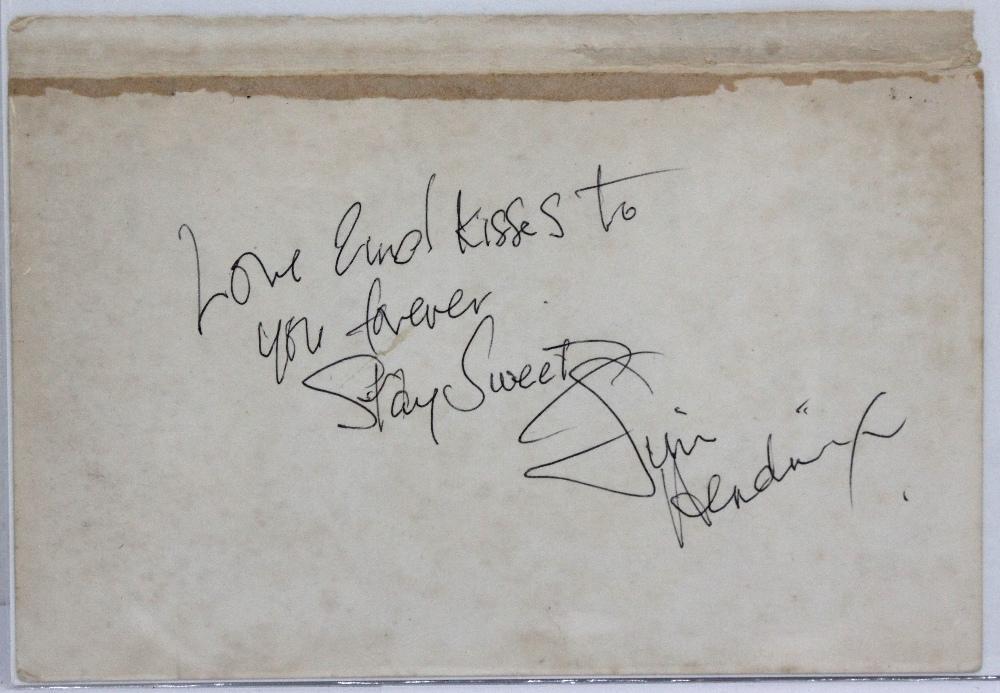 Love and kisses to
you forever
Stay Sweet
Jimi
Hendrix